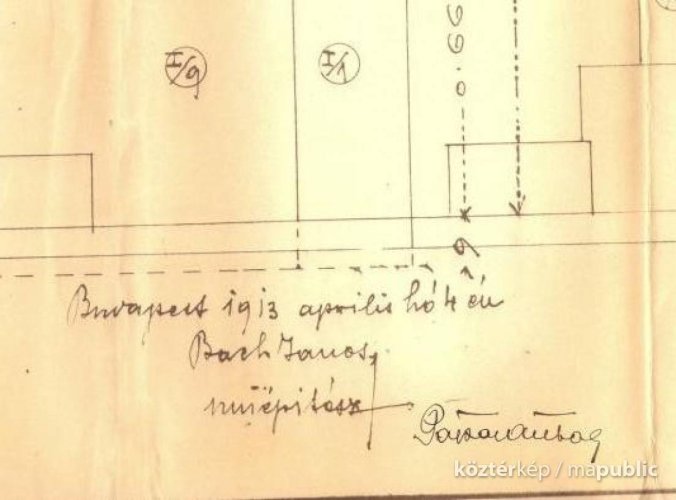 I/9
I/1
0.66
9
Budapest 1913 április hó 4 én
Bach Janos,
műépitész
köztérkép / mapublic